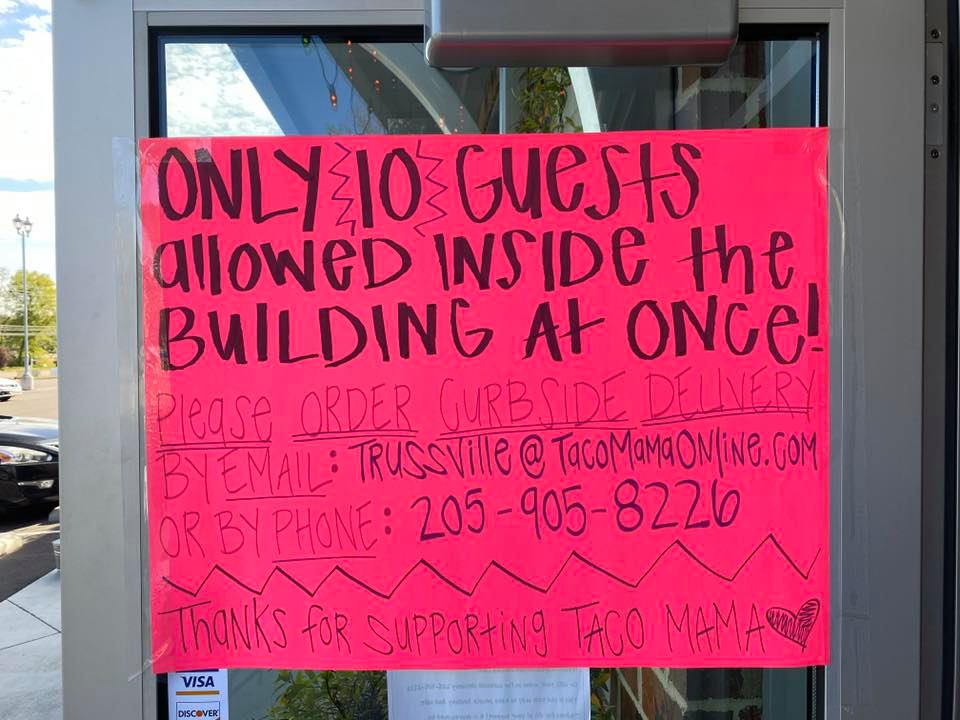 ONLY 10 GUeSTS
allOWeD INSIDe the
BUILDING At ONCe!
Please ORDER CURBSIDE DELIVERY
BY EMAIL: TRUSSVille@TacoMamaOnline.com
OR BY PHONE: 205-905-8226
THaNKS foR SUPPORtiNg TACO MAMA
VISA
DISCOVER